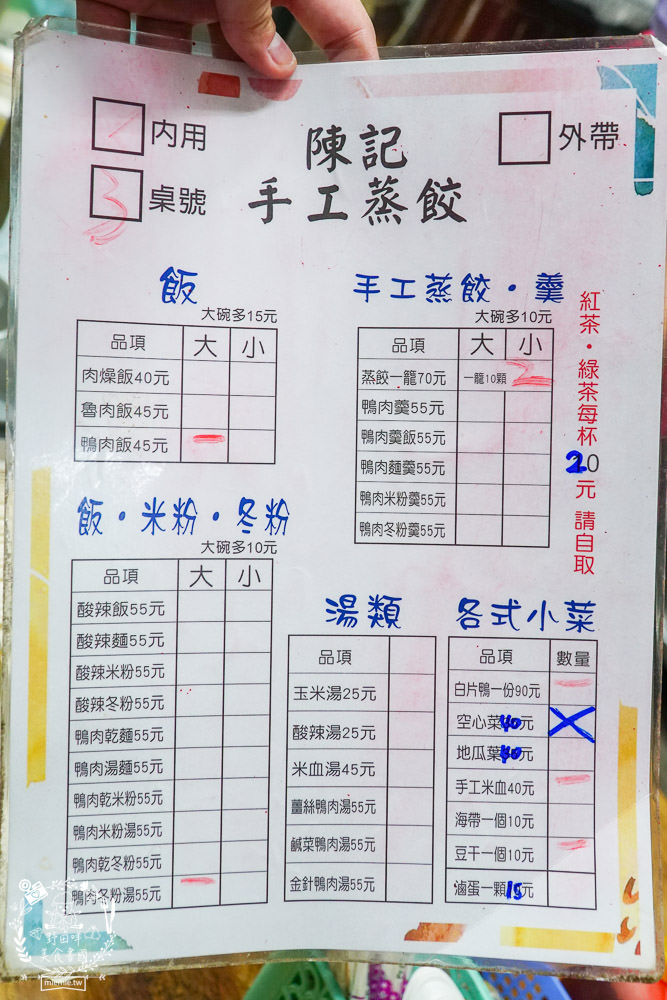 內用
外帶
桌號 3
陳記
手工蒸餃
飯
大碗多15元
品項 大 小
肉燥飯40元
魯肉飯45元
鴨肉飯45元
手工蒸餃・羹
大碗多10元
品項 大 小
蒸餃一籠70元 一籠10顆
鴨肉羹55元
鴨肉羹飯55元
鴨肉麵羹55元
鴨肉米粉羹55元
鴨肉冬粉羹55元
紅茶・綠茶每杯20元 請自取
飯・米粉・冬粉
大碗多10元
品項 大 小
酸辣飯55元
酸辣麵55元
酸辣米粉55元
酸辣冬粉55元
鴨肉乾麵55元
鴨肉湯麵55元
鴨肉乾米粉55元
鴨肉米粉湯55元
鴨肉乾冬粉55元
鴨肉冬粉湯55元
湯類
品項
玉米湯25元
酸辣湯25元
米血湯45元
薑絲鴨肉湯55元
鹹菜鴨肉湯55元
金針鴨肉湯55元
各式小菜
品項 數量
白片鴨一份90元
空心菜40元
地瓜葉40元
手工米血40元
海帶一個10元
豆干一個10元
滷蛋一顆15元
美食書圖
michile.tw